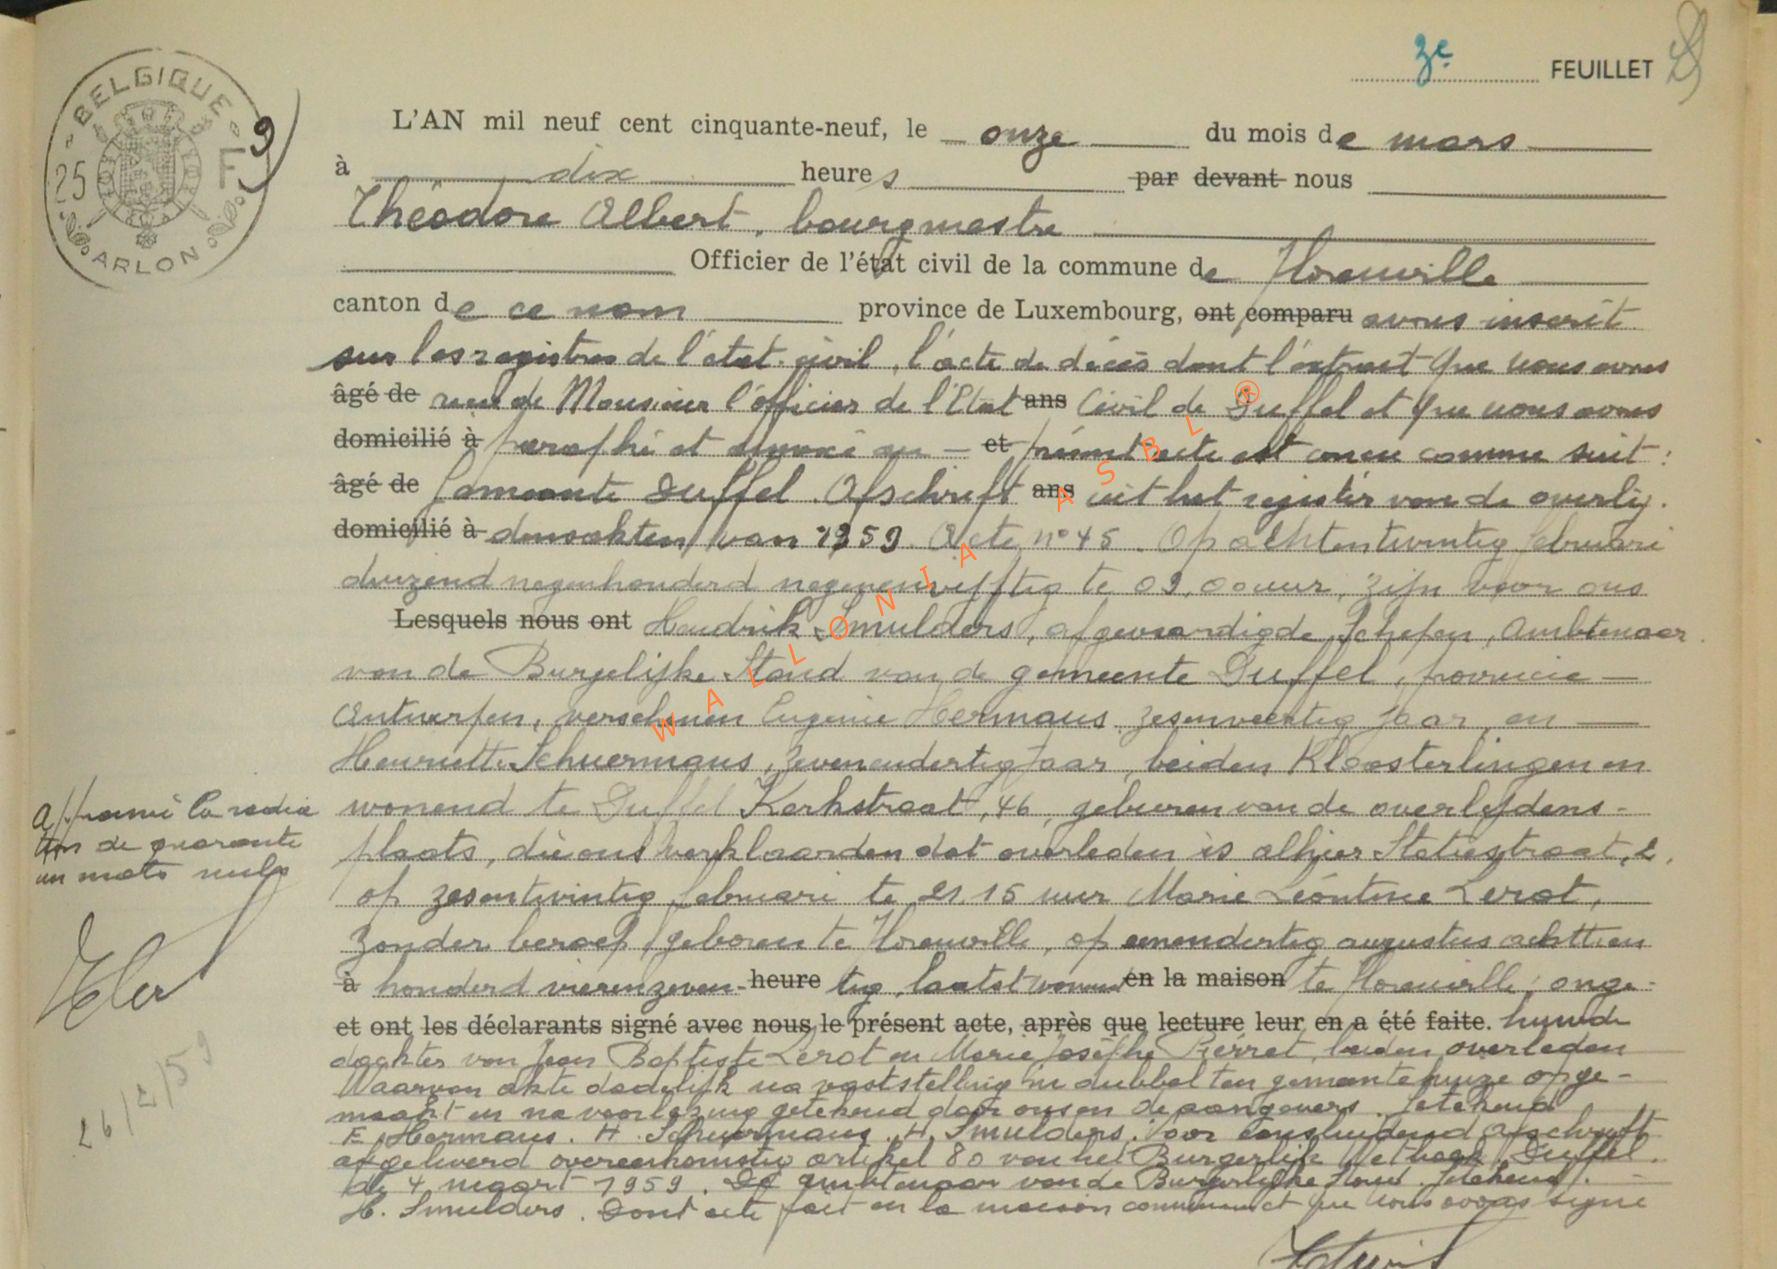 3e FEUILLET
BELGIQUE
25 F
ARLON
9)
L'AN mil neuf cent cinquante-neuf, le onze du mois de mars
à dix heures par devant nous
Théodore Albert, bourgmestre
Officier de l'état civil de la commune de Florenville
canton de ce nom province de Luxembourg, ont comparu avons inscrit
sur les registres de l'état-civil, l'acte de décès dont l'extrait que nous avons
âgé de reçu de Monsieur l'officier de l'Etat ans Civil de Duffel et que nous avons
domicilié à paraphé et annexé au et présent acte est conçu comme suit :
âgé de Gemeente Duffel. Afschrift ans uit het register van de overlij-
domicilié à densakten van 1959. Acte n° 45. Op achtentwintig februari
duizend negenhonderd negenenvijftig te 09.00 uur, zijn voor ons
Lesquels nous ont Hendrik Smulders, afgevaardigde Schepen, Ambtenaar
van de Burgelijke Stand van de gemeente Duffel, provincie
Antwerpen, verschenen Eugenie Hermans zesenveertig jaar en
Henriette Schuermans, zevenendertig jaar, beiden Kloosterlingen en
wonend te Duffel Kerkstraat, 46, geburen van de overlijdens-
plaats, die ons verklaarden dat overleden is alhier Statiestraat, 2,
op zesentwintig februari te 21.15 uur Marie Léontine Lerot,
zonder beroep, geboren te Florenville, op eenendertig augustus achttien
à honderd vierenzeven- heure tig, laatst wonend en la maison te Florenville, onge-
et ont les déclarants signé avec nous le présent acte, après que lecture leur en a été faite. huwde
dochter van Jean Baptiste Lerot en Marie Josèphe Pierret, beiden overleden
Waarvan akte dadelijk na vaststelling in dubbel ten gemeentehuize opge-
maakt en na voorlezing getekend door ons en de aangevers. Getekend
E. Hermans. H. Schuermans. H. Smulders. Voor eensluidend afschrift
afgeleverd overeenkomstig artikel 80 van het Burgerlijk Wetboek. Duffel.
de 4 maart 1959. De ambtenaar van de Burgerlijke Stand. Getekend.
H. Smulders. Dont acte fait en la maison communale et que nous avons signé
Approuvé la radia
tion de quarante
un mots nuls
26/2/59
WALLONIA ASBL ®